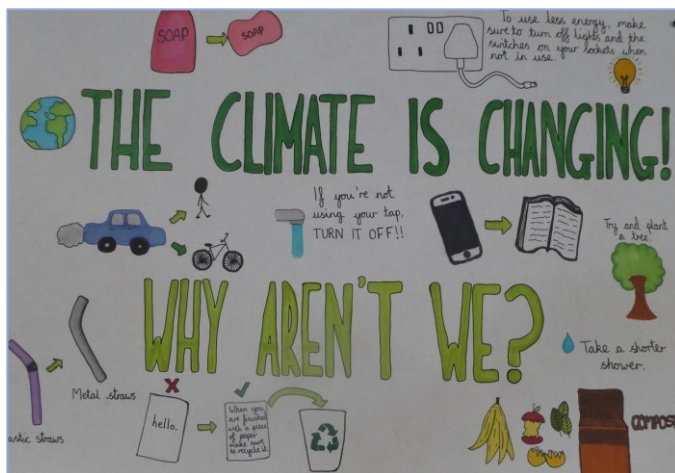 SOAP
SOAP
To use less energy, make
sure to turn off lights and the
switches on your sockets when
not in use.
THE CLIMATE IS CHANGING!
If you're not
using your tap,
TURN IT OFF!!
Try and plant
a tree.
WHY AREN'T WE?
Take a shorter
shower.
Metal straws
astic straws
hello.
When you
are finished
with a piece
of paper
make sure
to recycle it.
COMPOST